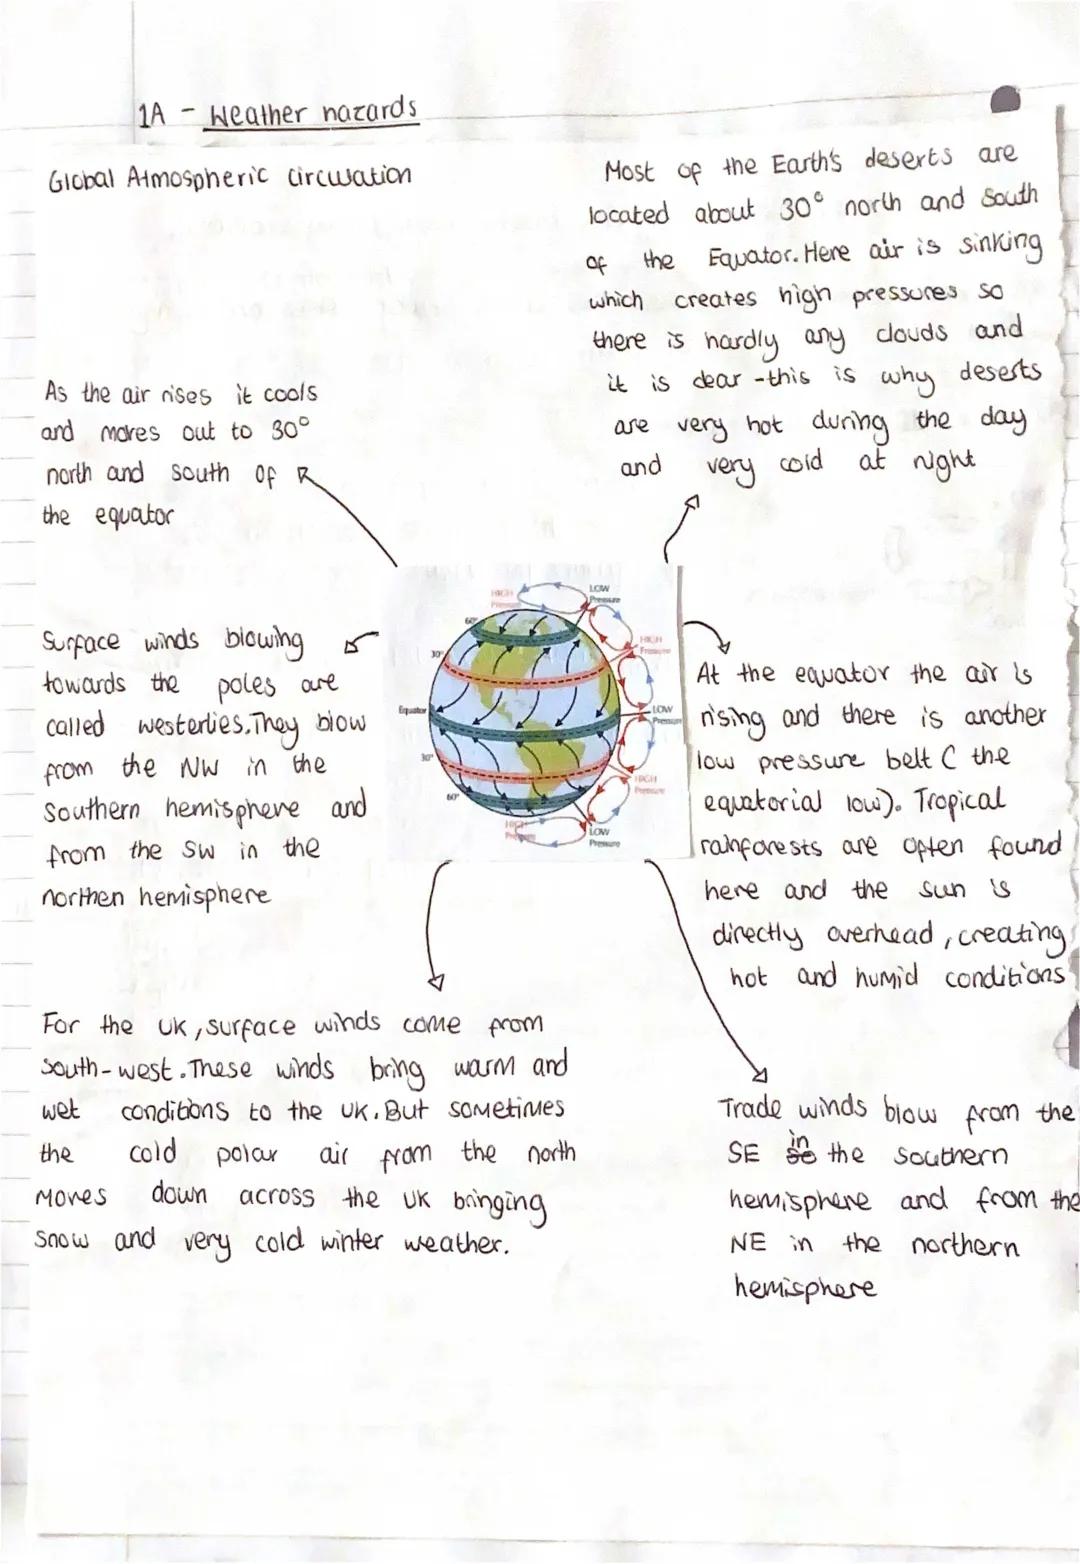 1A - Weather hazards
Global Atmospheric circulation
Most of the Earth's deserts are
located about 30° north and South
of the Equator. Here air is sinking
which creates high pressures so
there is hardly any clouds and
it is clear - this is why deserts
are very hot during the day
and very cold at night
As the air rises it cools
and moves out to 30°
north and south of
the equator
HIGH
Pressure
LOW
Pressure
60°
HIGH
Pressure
30°
Equator
LOW
Pressure
30°
HIGH
Pressure
60°
HIGH
Pressure
LOW
Pressure
Surface winds blowing
towards the poles are
called westerlies. They blow
from the NW in the
Southern hemisphere and
from the SW in the
northen hemisphere
At the equator the air is
rising and there is another
low pressure belt ( the
equatorial low). Tropical
rainforests are often found
here and the sun is
directly overhead, creating
hot and humid conditions
For the UK, surface winds come from
south-west. These winds bring warm and
wet conditions to the UK. But sometimes
the cold polar air from the north
moves down across the UK bringing
snow and very cold winter weather.
Trade winds blow from the
SE in the southern
hemisphere and from the
NE in the northern
hemisphere